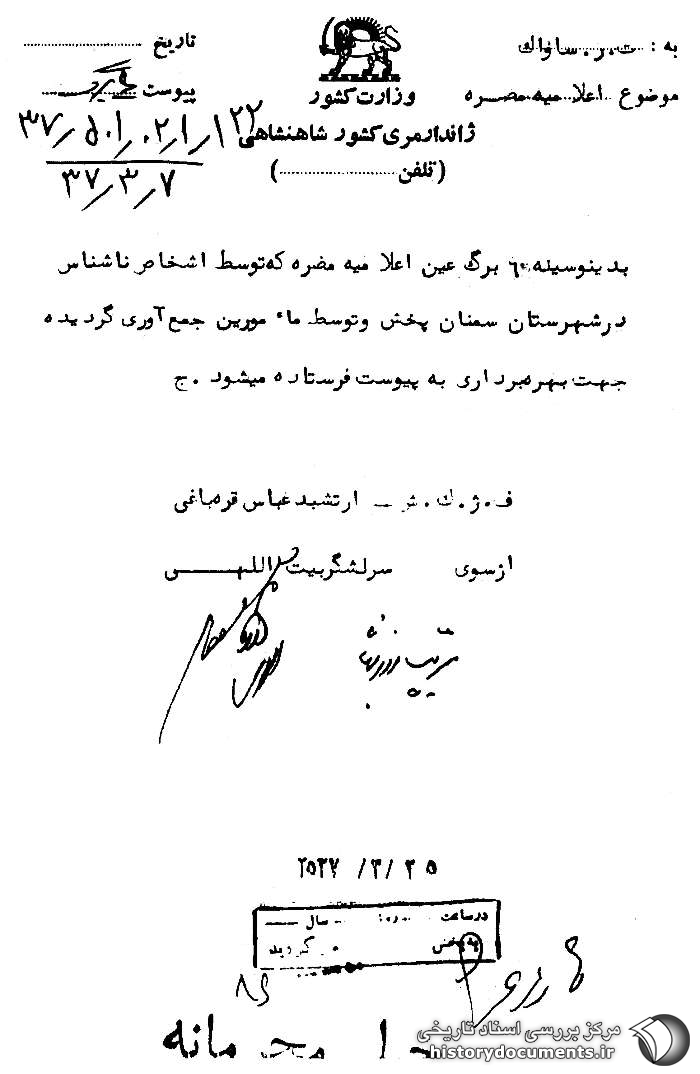 به : ت.ر.ساواك
موضوع اعلامیه مضره
وزارت کشور
ژاندارمری کشور شاهنشاهی
(تلفن ....................)
تاریخ ....................
پیوست ۶ برگ
۳۷/۳/۷
بدینوسیله ٦ برگ عین اعلامیه مضره که توسط اشخاص ناشناس
در شهرستان سمنان پخش و توسط ماء مورین جمع آوری گردیده
جهت بهره برداری به پیوست فرستاده میشود .ج
ف.ژ.ك.ش ــ ارتشبد عباس قره باغی
از سوی سرلشگر بیت اللهی
۲۵۳۷ /۳/ ۲۵
در ساعت روز سال
به بخش گردید
۸۶
محرمانه
مرکز بررسی اسناد تاریخی
historydocuments.ir